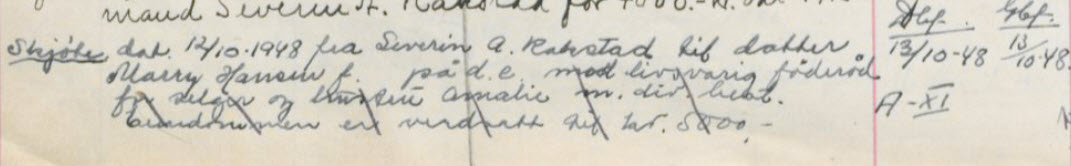 mand Severin A. Rakstad for 4000.- kr.
Skjøte dat. 12/10-1948 fra Severin A. Rakstad til datter
Marry Hansen f. på d.e. med livsvarig föderåd
for selger og hustru Amalie m. div. best.
Eiendommen er verdsatt til kr. 5000,-
Dbf. Gbf.
13/10-48 13/10-48.
A-XI